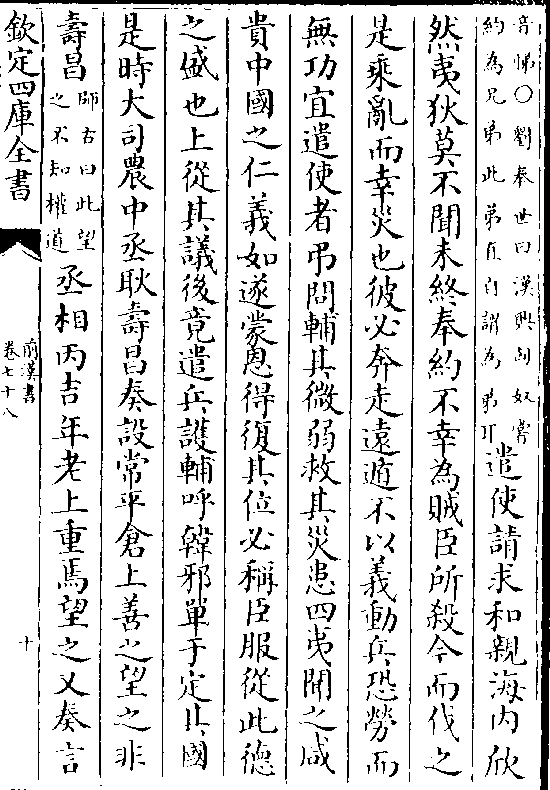 音悌〇劉奉世曰漢興匈奴嘗
約為兄弟此弟直自謂為弟耳
遣使請求和親海内欣
然夷狄莫不聞未終奉約不幸為賊臣所殺今而伐之
是乘亂而幸災也彼必奔走遠遁不以義動兵恐勞而
無功宜遣使者弔問輔其微弱救其災患四夷聞之咸
貴中國之仁義如遂蒙恩得復其位必稱臣服從此德
之盛也上從其議後竟遣兵護輔呼韓邪單于定其國
是時大司農中丞耿壽昌奏設常平倉上善之望之非
壽昌
師古曰此望
之不知權道
丞相丙吉年老上重焉望之又奏言
欽定四庫全書
前漢書
卷七十八
十